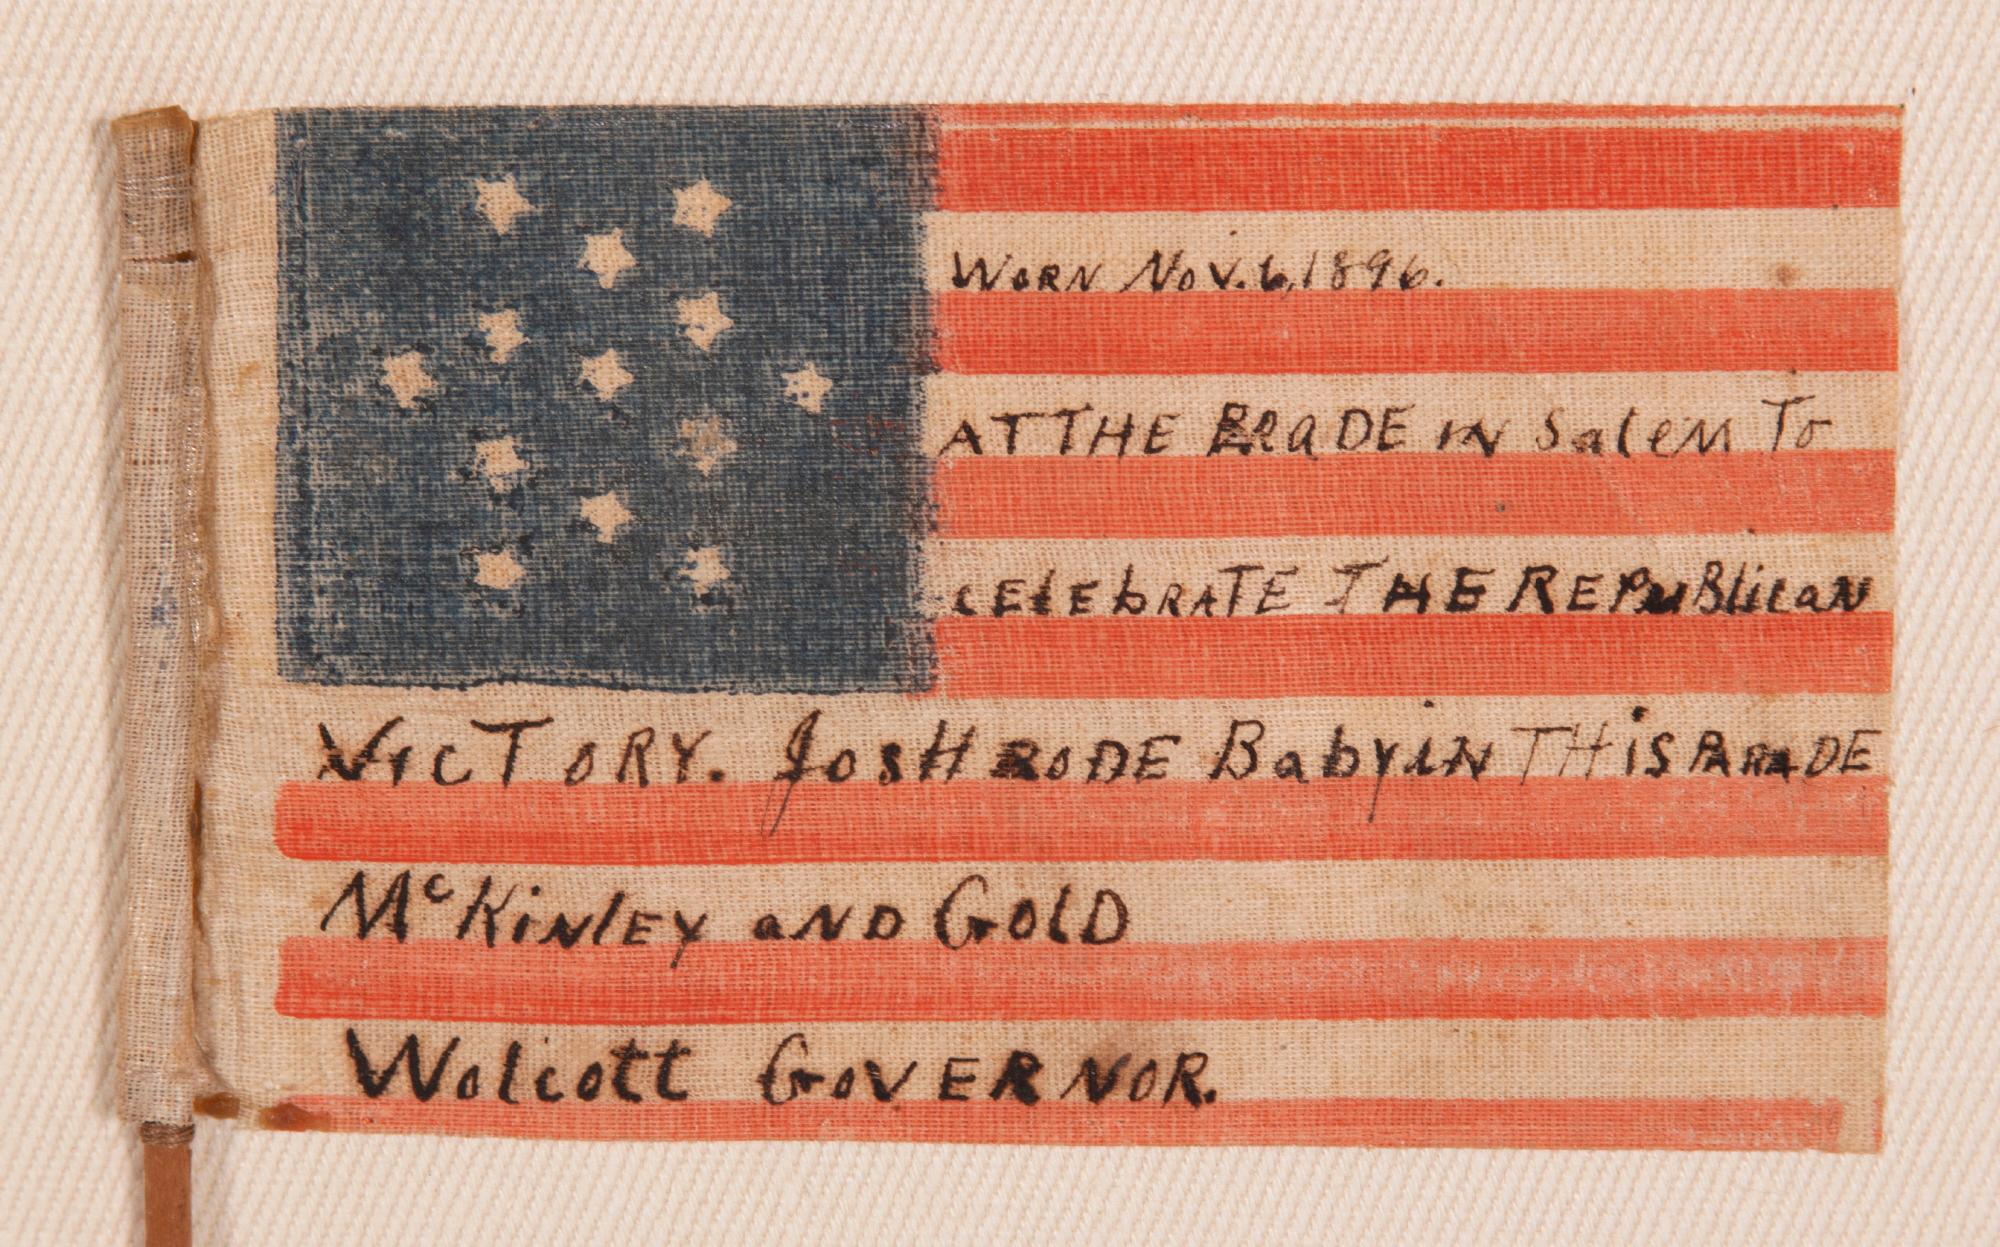 Worn Nov. 6, 1896.
AT THE PRaDE in Salem To
CElEbRATE THE REPuBlican
VicTORY. JosH RODE Baby in THis PARADE
McKinlEy aND GolD
Wolcott GoVERNOR.